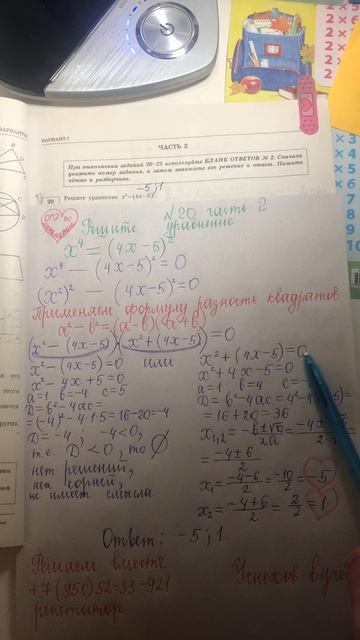 ВАРИАНТ 7
ЧАСТЬ 2
При выполнении заданий 20–25 используйте БЛАНК ОТВЕТОВ № 2. Сначала
укажите номер задания, а затем запишите его решение и ответ. Пишите
чётко и разборчиво.
-5;1
20 Решите уравнение x⁴=(4x-5)².
№20 часть 2
Решите уравнение
x⁴ = (4x-5)²
x⁴ - (4x-5)² = 0
(x²)² - (4x-5)² = 0
Применяем формулу разность квадратов
a²-b²=(a-b)(a+b)
(x²-(4x-5))·(x²+(4x-5))=0
x²-(4x-5)=0 или
x²-4x+5=0
a=1 b=-4 c=5
D=b²-4ac=
=(-4)²-4·1·5=16-20=-4
D=-4, -4<0,
т.е. D<0, то ∅
нет решений,
нет корней,
не имеет смысла
x²+(4x-5)=0
x²+4x-5=0
a=1 b=4
D=b²-4ac=
=16+20=36
=-4±6/2
x₁=-4-6/2=-10/2=-5
x₂=-4+6/2=2/2=1
Ответ: -5;1.
Решаем вместе
+7(950)52-33-921
репетитор
Успехов в учё